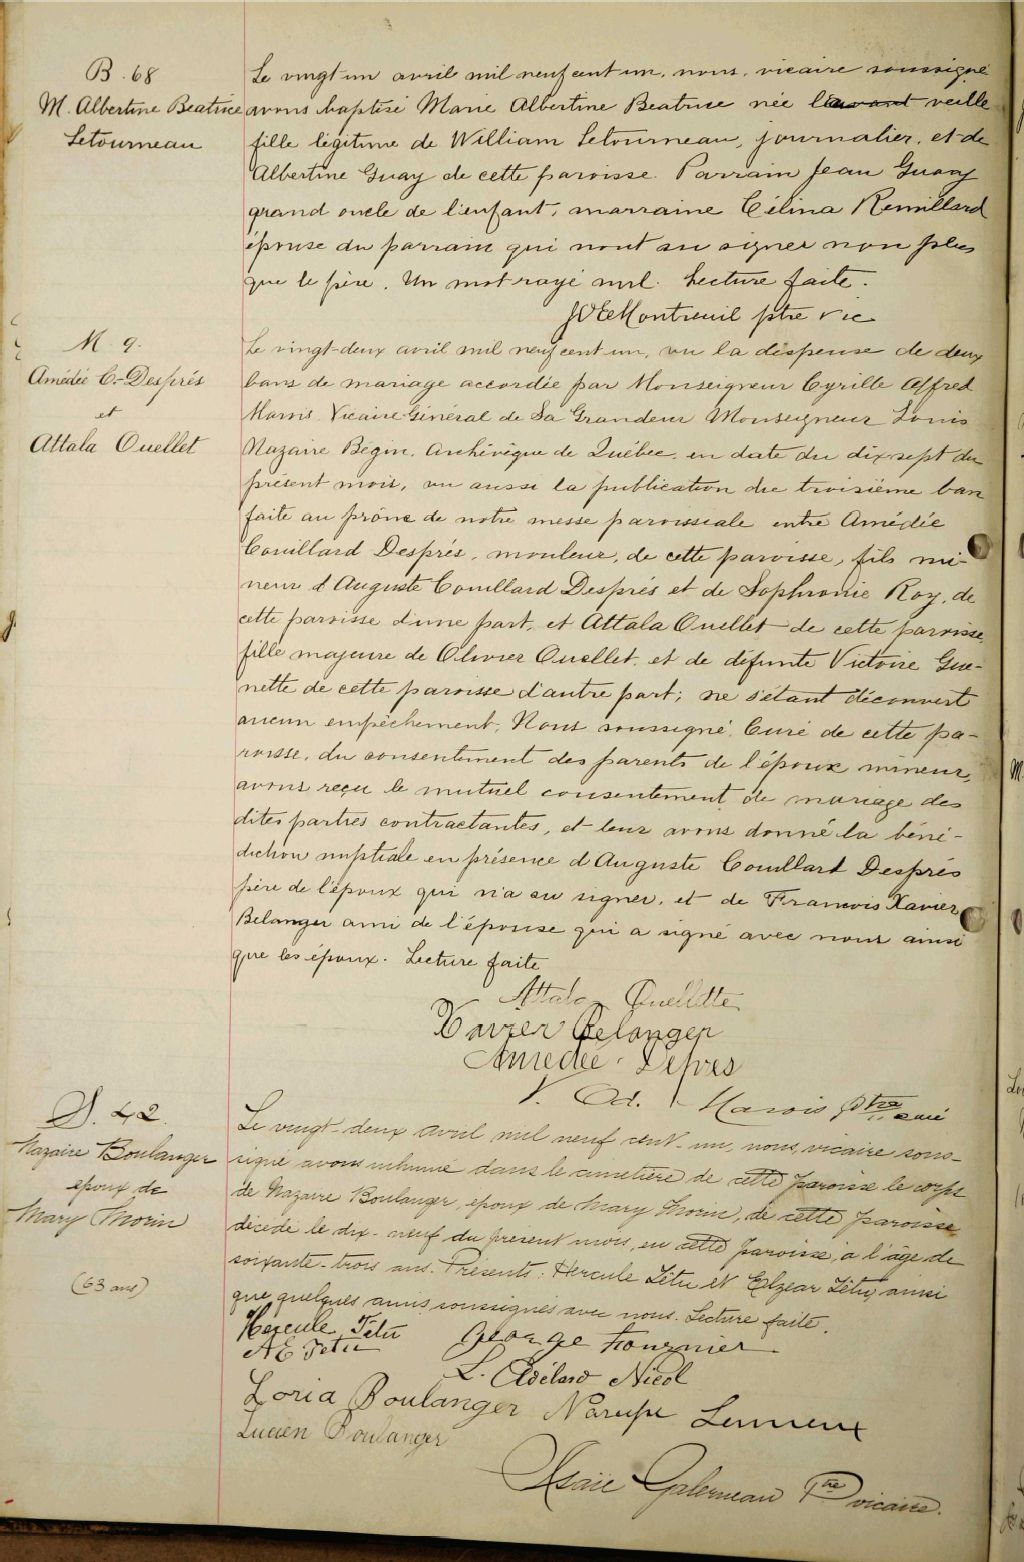 B. 68
M. Albertine Beatrice
Letourneau
Le vingt-un avril mil neuf cent un, nous, vicaire soussigné
avons baptisé Marie Albertine Beatrice née la veille
fille légitime de William Letourneau, journalier, et de
Albertine Guay de cette paroisse. Parrain Jean Guay
grand oncle de l'enfant, marraine Célina Remillard
épouse du parrain qui n'ont su signer non plus
que le père. Un mot rayé nul. Lecture faite.
Montreuil ptre vic
M 9.
Amédée C.-Després
et
Attala Ouellet
Le vingt-deux avril mil neuf cent un, vu la dispense de deux
bans de mariage accordée par Monseigneur Cyrille Alfred
Marois Vicaire Général de Sa Grandeur Monseigneur Louis
Nazaire Bégin, Archévêque de Québec, en date du dix sept du
présent mois, vu aussi la publication du troisième ban
faite au prône de notre messe paroissiale entre Amédée
Couillard Després, mouleur, de cette paroisse, fils mi-
neur d'Auguste Couillard Després et de Sophronie Roy, de
cette paroisse d'une part, et Attala Ouellet de cette paroisse,
fille majeure de Olivier Ouellet et de défunte Victoire Gue-
nette de cette paroisse d'autre part; ne s'étant découvert
aucun empêchement, Nous soussigné, Curé de cette pa-
roisse, du consentement des parents de l'époux mineur,
avons reçu le mutuel consentement de mariage des
dites parties contractantes, et leur avons donné la béné-
diction nuptiale en présence d'Auguste Couillard Després
père de l'époux qui n'a su signer, et de François Xavier
Belanger ami de l'épouse qui a signé avec nous ainsi
que les époux. Lecture faite
Attala Ouellette
Xavier Belanger
Amedée Depres
V. Od. Marois ptre curé
S. 42.
Nazaire Boulanger
epoux de
Mary Morin
(63 ans)
Le vingt-deux avril mil neuf cent-un, nous, vicaire sous-
signé avons inhumé dans le cimetière de cette paroisse le corps
de Nazaire Boulanger, epoux de Mary Morin, de cette paroisse,
décédé le dix-neuf du présent mois, en cette paroisse, à l'âge de
soixante-trois ans. Présents: Hercule Têtu et Elzear Têtu, ainsi
que quelques amis soussignés avec nous. Lecture faite.
Hercule Tetu George Fournier
A E Tetu
L. Adélard Nicol
Loria Boulanger Narcisse Lemieux
Lucien Boulanger
Isaie Galerneau Ptre vicaire.